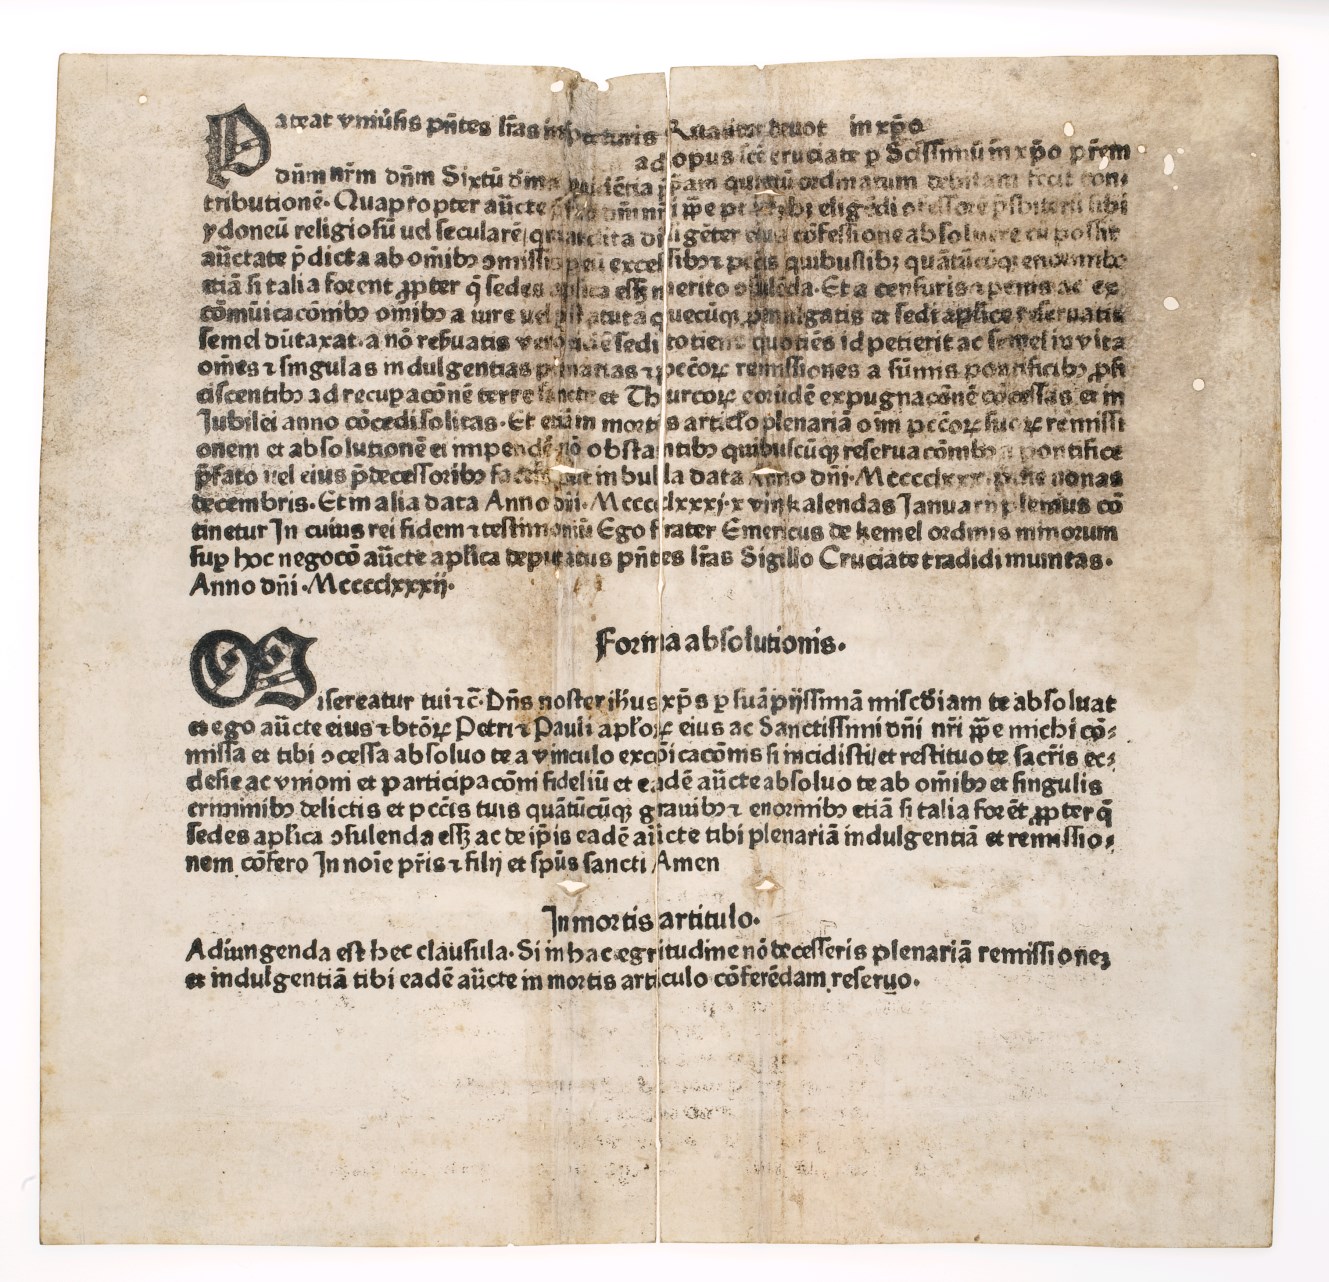 Pateat vniũsis pñtes lr̃as inspecturis Quatter deuot in xp̃o
ad opus sc̃e cruciate ꝑ Sc̃issimũ in xp̃o pr̃em
dñm nr̃m dñm Sixtũ diuina ꝓuidẽtia p̃am quartũ ordinatum debitam fecit con-
tributionẽ. Quapropter aũcte p̃fati dñi nr̃i pp̃e
ydoneũ religiosũ uel secularẽ diligẽter eius cõfessione absoluere cũ possit
aũctate p̃dicta ab om̃ibꝰ ↄmissis ꝑ eũ excessibꝰ ⁊ pctis̃ quibuslibꝫ quãtũcũqꝫ enormibꝰ
etiã si talia forent ꝓpter q̃ sedes aplica esset merito ↄsulẽda. Et a censuris ⁊ penis ac ex
cõmũicacõnibꝰ om̃ibꝰ a iure uel statuta quecũqꝫ ꝓmulgatis et sedi aplice reseruatis
semel dũtaxat. a nõ reẜuatis vero dicte sedi totiens quotiẽs id petierit ac semel in vita
om̃es ⁊ singulas indulgentias plenarias ⁊ pctc̃oꝝ remissiones a sũmis pontificibꝰ ꝓfi
ciscentibꝰ ad recupacõnẽ terre sancte et Thurcoꝝ eorũdẽ expugnacõnẽ cõcessas et in
Jubilei anno cõcedi solitas. Et etiam mortis articl̃o plenariã oĩm pctc̃oꝝ suoꝝ remissi
onem et absolutionẽ ei impendẽ. nõ obstantibꝰ quibuscũqꝫ reseruacõnibꝰ a pontifice
p̃fato uel eius p̃decessoribꝰ factis put in bulla data Anno dñi. Mcccclxxx. nonas
decembris. Et in alia data Anno dñi. Mcccclxxxj. x viij kalendas Januarij plenius cõ
tinetur In cuius rei fidem ⁊ testimoniũ Ego frater Emericus de kemel ordinis minorum
suꝑ hoc negocõ aũcte aplica deputatus pñtes lr̃as Sigillo Cruciate tradidi munitas.
Anno dñi. Mcccclxxxij.
Forma absolutionis.
Misereatur tui ⁊c̃. Dñs noster ihũs xp̃s ꝑ suã pijssimã misc̃diam te absoluat
et ego aũcte eius ⁊ bt̃oꝝ Petri ⁊ Pauli apl̃oꝝ eius ac Sanctissimi dñi nr̃i pp̃e michi cõ-
missa et tibi ↄcessa absoluo te a vinculo excõicacõnis si incidisti/et restituo te sacr̃is ec-
clesie ac vnioni et participacõni fideliũ et eadẽ aũcte absoluo te ab om̃ibꝰ et singulis
criminibꝰ delictis et pctc̃is tuis quãtũcũqꝫ grauibꝰ ⁊ enormibꝰ etiã si talia forẽt ꝓpter q̃
sedes aplica ↄsulenda essꝫ ac de ip̃is eadẽ aũcte tibi plenariã indulgentiã et remissio-
nem cõfero In noĩe pr̃is ⁊ filij et sp̃ũs sancti Amen
In mortis artitulo.
Adiungenda est hec clausula. Si in hac egritudine nõ decesseris plenariã remissionez
et indulgentiã tibi eadẽ aũcte in mortis articulo cõferẽdam reseruo.